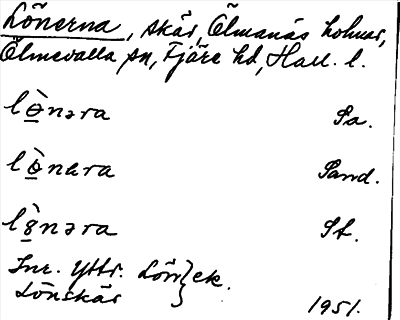 Lönerna, skär, Ölmanäs holmar,
Ölmevalla sn, Fjäre hd, Hall. l.
lə̀nəra Sa.
lò̱nara Sand.
lỳnəra St.
Inr. Yttr. Lön } ek.
Lönskär
1951.